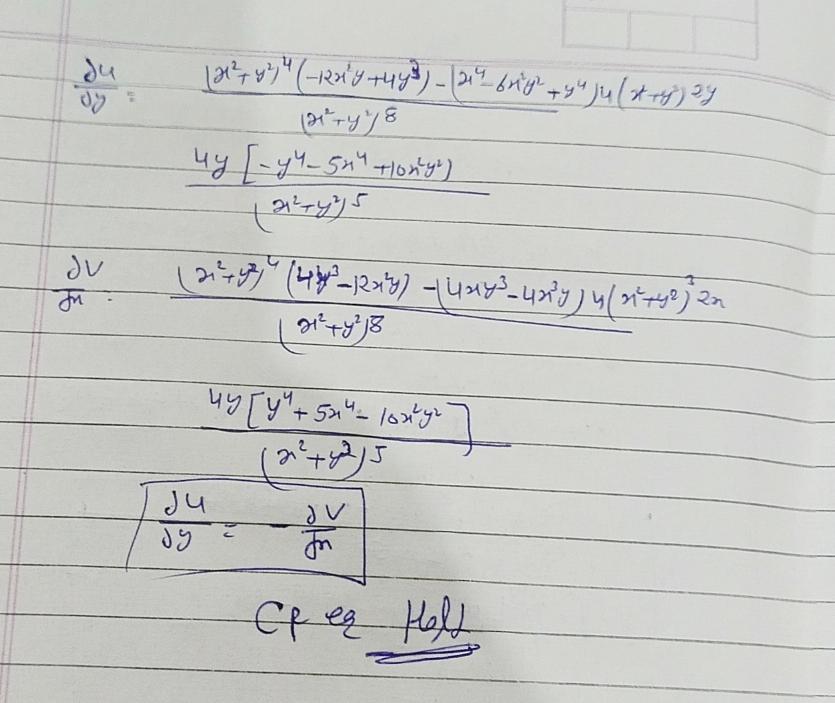 ∂u/∂y = (x²+y²)⁴(-12x²y+4y³) - (x⁴-6x²y²+y⁴)4(x²+y²)³2y
(x²+y²)8
4y[-y⁴-5x⁴+10x²y²)
(x²+y²)5
∂V/∂x = (x²+y²)⁴(4y³-12x²y) - (4xy³-4x³y)4(x²+y²)³2x
(x²+y²)8
4y[y⁴+5x⁴-10x²y²]
(x²+y²)5
∂u/∂y = -∂V/∂x
CR eq Held